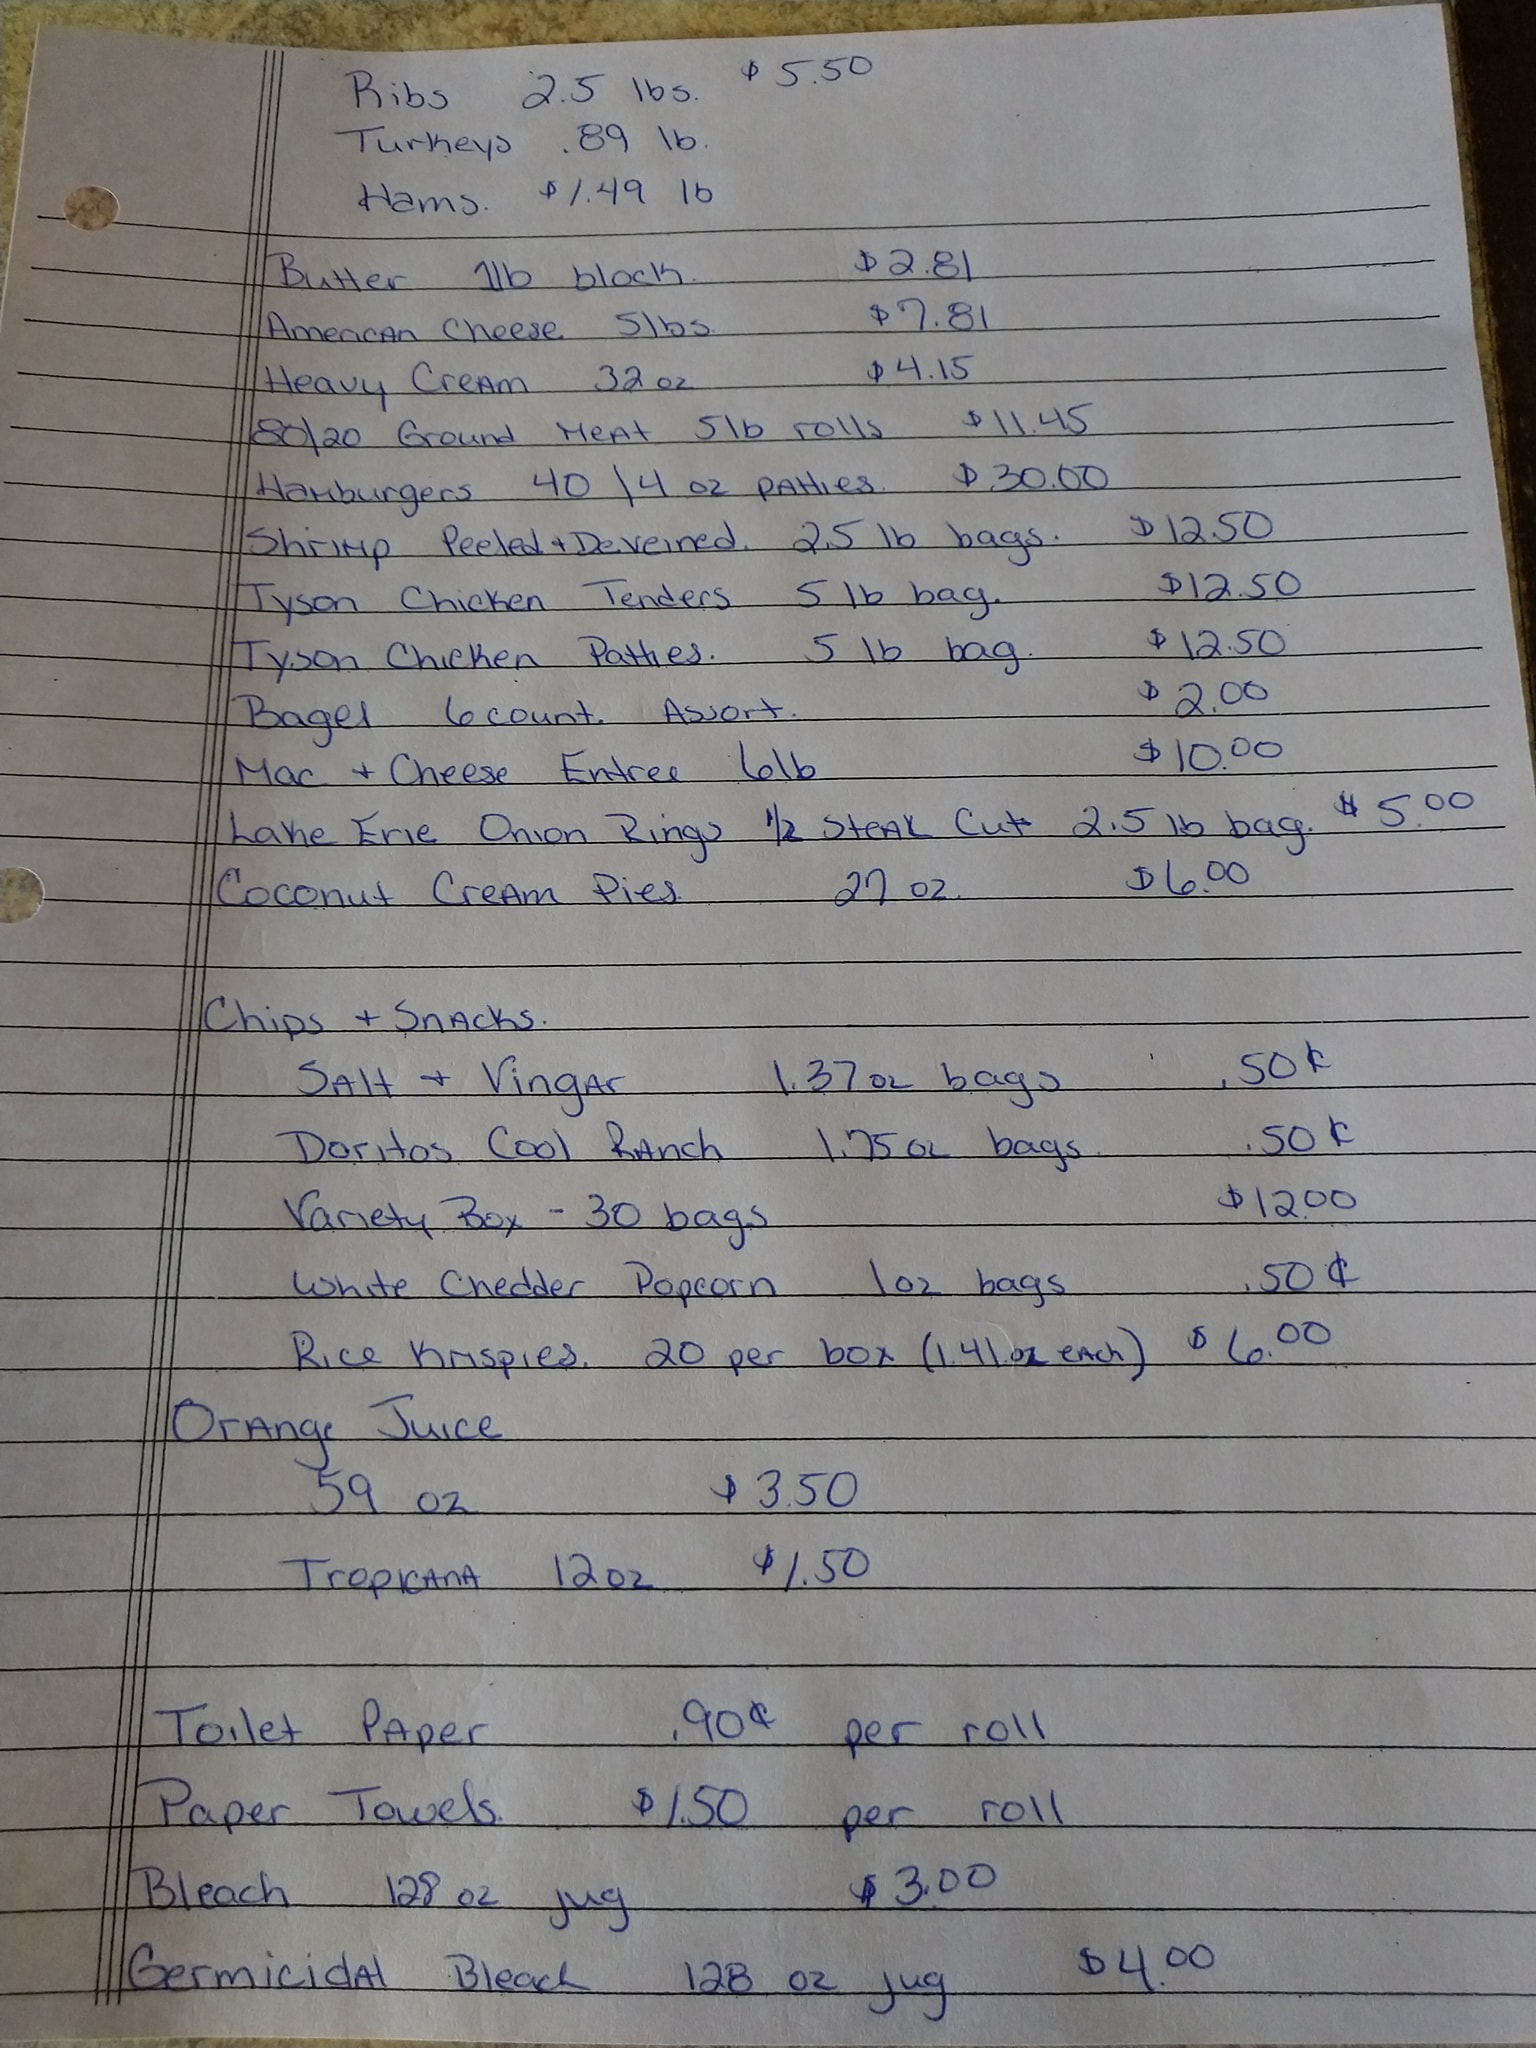 Ribs 2.5 lbs. $5.50
Turkeys .89 lb.
Hams. $1.49 lb
Butter 1lb block. $2.81
American Cheese 5lbs. $7.81
Heavy Cream 32 oz $4.15
80/20 Ground Meat 5lb rolls $11.45
Hamburgers 40 / 4 oz patties. $30.00
Shrimp Peeled + Deveined. 2.5 lb bags. $12.50
Tyson Chicken Tenders 5 lb bag. $12.50
Tyson Chicken Patties. 5 lb bag. $12.50
Bagel 6 count. Assort. $2.00
Mac + Cheese Entree 6lb $10.00
Lake Erie Onion Rings 1/2 Steak Cut 2.5 lb bag. $5.00
Coconut Cream Pies. 27 oz. $6.00
Chips + Snacks.
Salt + Vingar 1.37 oz bags .50¢
Doritos Cool Ranch 1.75 oz bags. .50¢
Variety Box - 30 bags $12.00
White Chedder Popcorn 1 oz bags .50¢
Rice Krispies. 20 per box (1.41 oz each) $6.00
Orange Juice
59 oz $3.50
Tropicana 12 oz $1.50
Toilet Paper .90¢ per roll
Paper Towels. $1.50 per roll
Bleach 128 oz jug $3.00
Germicidal Bleach 128 oz jug $4.00